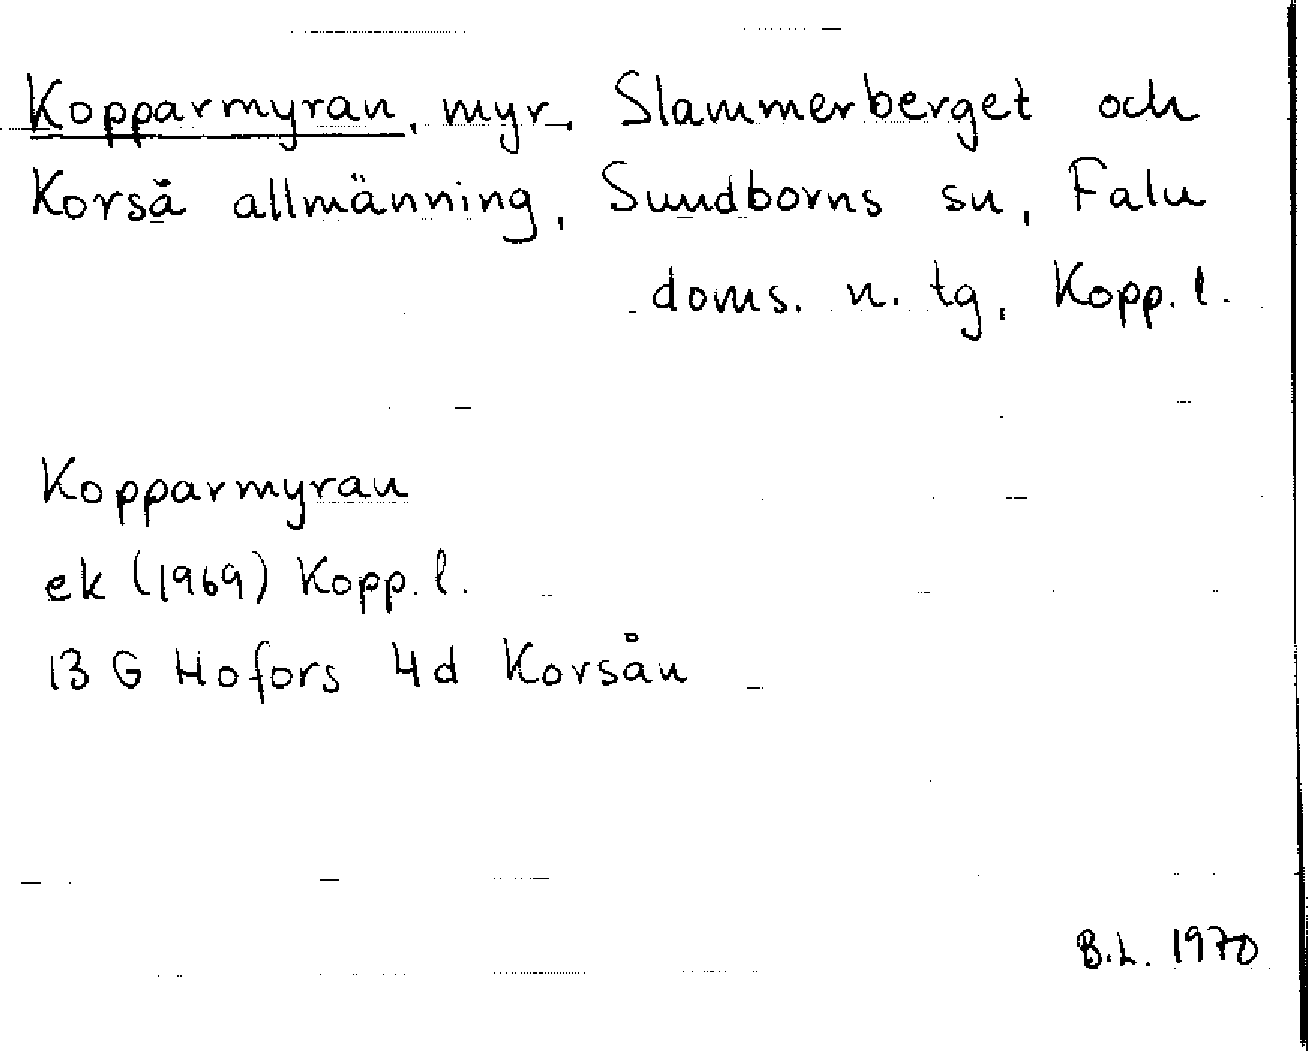 Kopparmyran, myr, Slammerberget och
Korså allmänning, Sundborns sn, Falu
doms. n. tg, Kopp. l.
Kopparmyran
ek (1969) Kopp. l.
13 G Hofors 4d Korsån
B.L. 1970